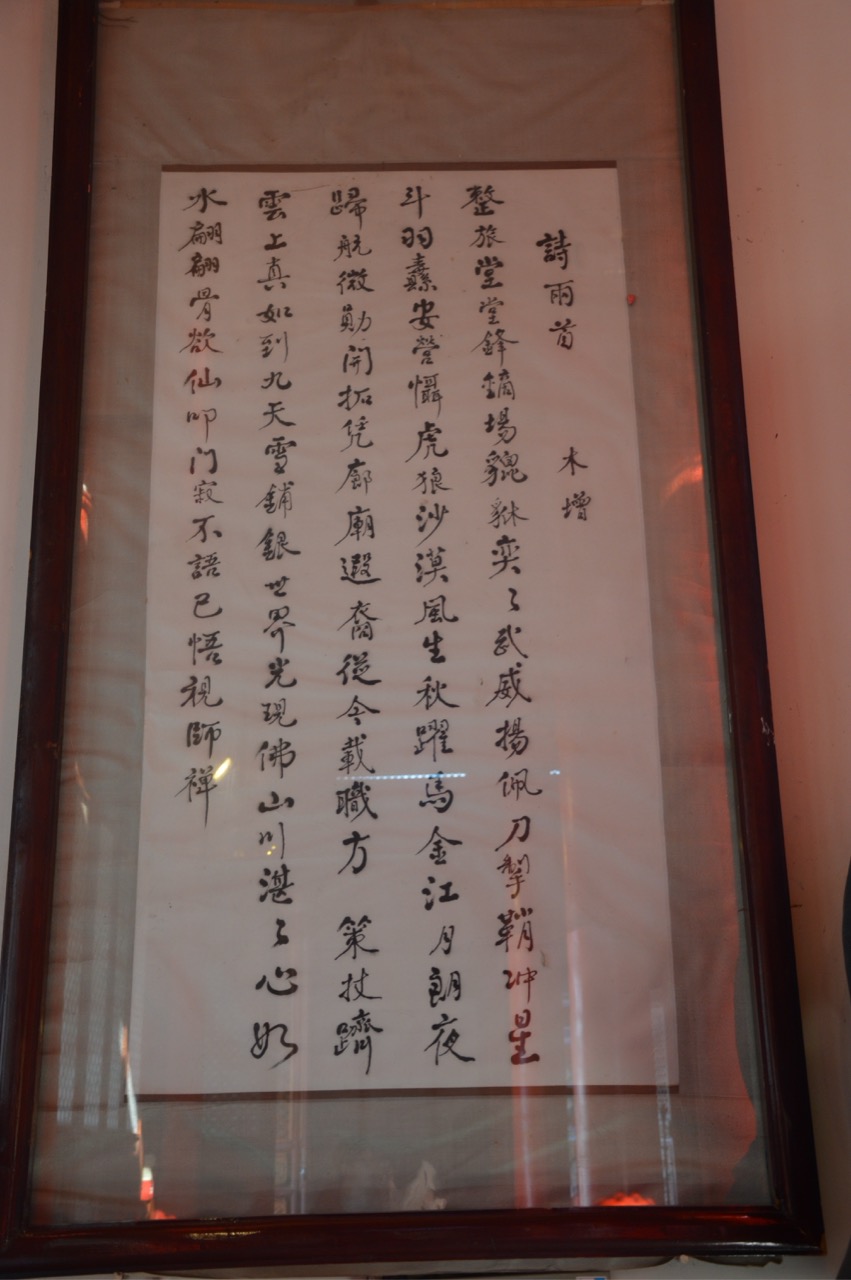 詩兩首 木增
整旅堂堂鋒鏑場貔貅奕々武威揚佩刀掣鞘冲星
斗羽纛安營懾虎狼沙漠風生秋躍馬金江月朗夜
歸航微勛開拓凭廊廟遐裔從今載職方 策杖躋
雲上真如到九天雪鋪銀世界光現佛山川湛々心如
水翩翩骨欲仙叩门寂不語已悟視師禅